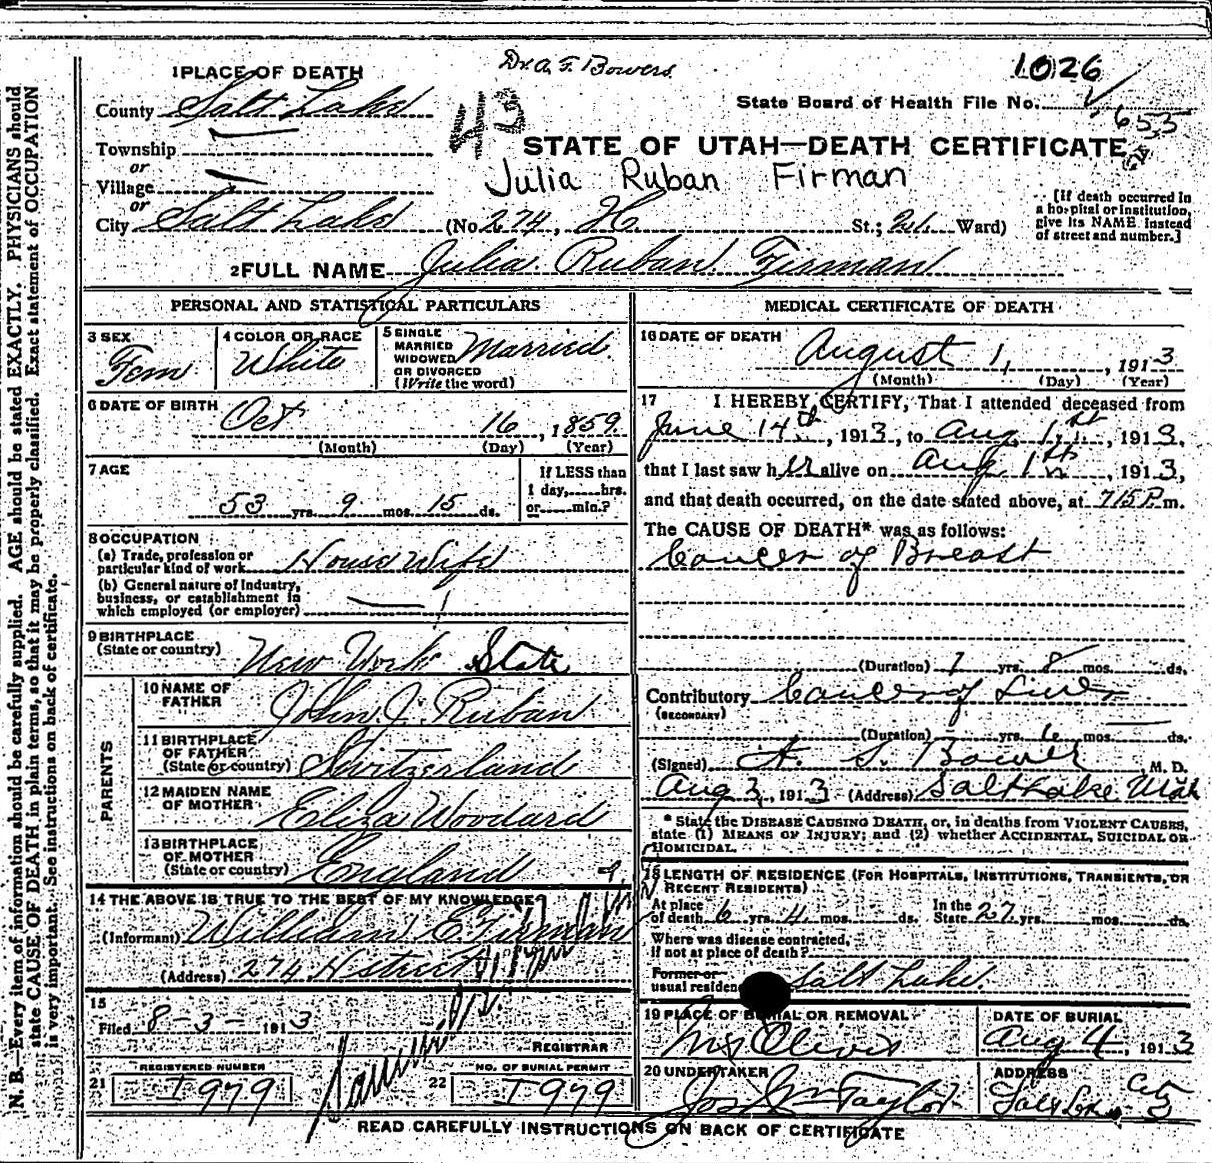 Dr. A. F. Bowers.
1026
43
653
1 PLACE OF DEATH
County Salt Lake
Township
or
Village
or
City Salt Lake (No 274, H. St.; 21 Ward)
State Board of Health File No.
STATE OF UTAH—DEATH CERTIFICATE
Julia Ruban Firman
[If death occurred in
a hospital or institution,
give its NAME instead
of street and number.]
2 FULL NAME Julia Ruban Firman
PERSONAL AND STATISTICAL PARTICULARS
3 SEX
Fem
4 COLOR OR RACE
White
5 SINGLE
MARRIED
WIDOWED
OR DIVORCED
(Write the word)
Married.
6 DATE OF BIRTH
Oct 16, 1859
(Month) (Day) (Year)
7 AGE
53 yrs. 9 mos. 15 ds.
If LESS than
1 day,......hrs.
or......min.?
8 OCCUPATION
(a) Trade, profession or
particular kind of work House Wife
(b) General nature of Industry,
business, or establishment in
which employed (or employer)
9 BIRTHPLACE
(State or country) New York State
PARENTS
10 NAME OF
FATHER John J. Ruban
11 BIRTHPLACE
OF FATHER
(State or country) Switzerland
12 MAIDEN NAME
OF MOTHER Eliza Woodard
13 BIRTHPLACE
OF MOTHER
(State or country) England
14 THE ABOVE IS TRUE TO THE BEST OF MY KNOWLEDGE
(Informant) William E. Firman
(Address) 274 H street
15
Filed 8-3- 1913
REGISTRAR
REGISTERED NUMBER
21 1979
NO. OF BURIAL PERMIT
22 1979
MEDICAL CERTIFICATE OF DEATH
16 DATE OF DEATH
August 1, 1913
(Month) (Day) (Year)
17 I HEREBY CERTIFY, That I attended deceased from
June 14th, 1913, to Aug. 1st, 1913,
that I last saw her alive on Aug 1st 1913,
and that death occurred, on the date stated above, at 715 P m.
The CAUSE OF DEATH* was as follows:
Cancer of Breast
(Duration) 1 yrs. 8 mos. ds.
Contributory Cancer of Liver
(SECONDARY)
(Duration) yrs. 6 mos. ds.
(Signed) A. S. Bower, M. D.
Aug 3, 1913 (Address) Salt Lake Utah
* State the DISEASE CAUSING DEATH, or, in deaths from VIOLENT CAUSES,
state (1) MEANS OF INJURY; and (2) whether ACCIDENTAL, SUICIDAL OR
HOMICIDAL.
18 LENGTH OF RESIDENCE (FOR HOSPITALS, INSTITUTIONS, TRANSIENTS, OR
RECENT RESIDENTS)
At place
of death 6 yrs. 4 mos. ds. In the
State 27 yrs. mos. ds.
Where was disease contracted,
if not at place of death?
Former or
usual residence Salt Lake.
19 PLACE OF BURIAL OR REMOVAL
Mt Olivis
DATE OF BURIAL
Aug 4, 1913
20 UNDERTAKER
Jos Wm Taylor
ADDRESS
Salt Lake City
READ CAREFULLY INSTRUCTIONS ON BACK OF CERTIFICATE
N. B.—Every item of information should be carefully supplied. AGE should be stated EXACTLY. PHYSICIANS should
state CAUSE OF DEATH in plain terms, so that it may be properly classified. Exact statement of OCCUPATION
is very important. See instructions on back of certificate.